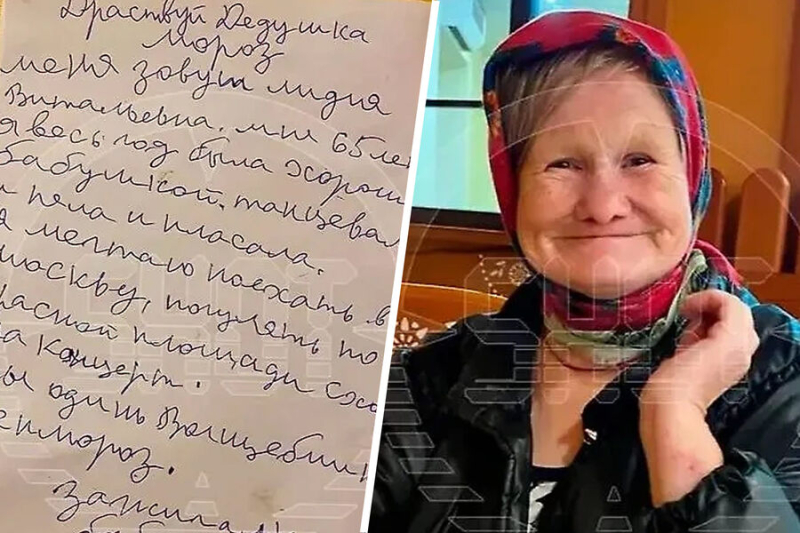 Драствуй Дедушка
Мороз
меня зовут лидия
Витальевна. мне 65 лет
я весь год была хорош
бабушкой. танцевал
и пела и плсала.
я мечтаю поехать в
москву, погулять по
расной площади схо
на концерт.
ы один Волщебник
мороз.